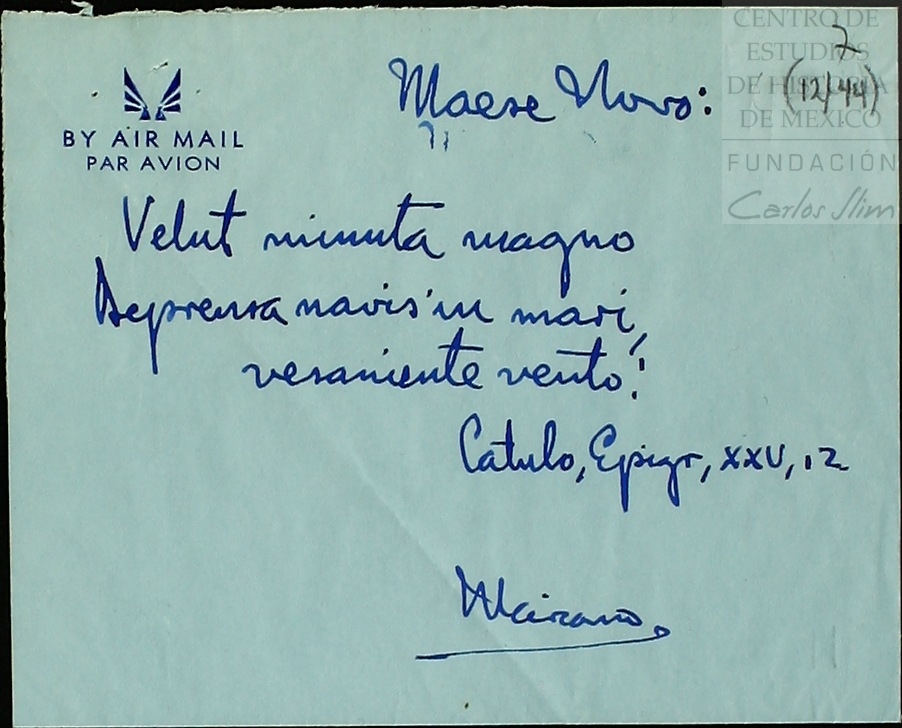 CENTRO DE
ESTUDIOS
DE HISTORIA
DE MEXICO
FUNDACIÓN
Carlos Slim
7
(12/44)
BY AIR MAIL
PAR AVION
Maese Novo:
Velut minuta magno
Deprensa navis in mari,
vesaniente vento!
Catulo, Epigr, XXV, 12